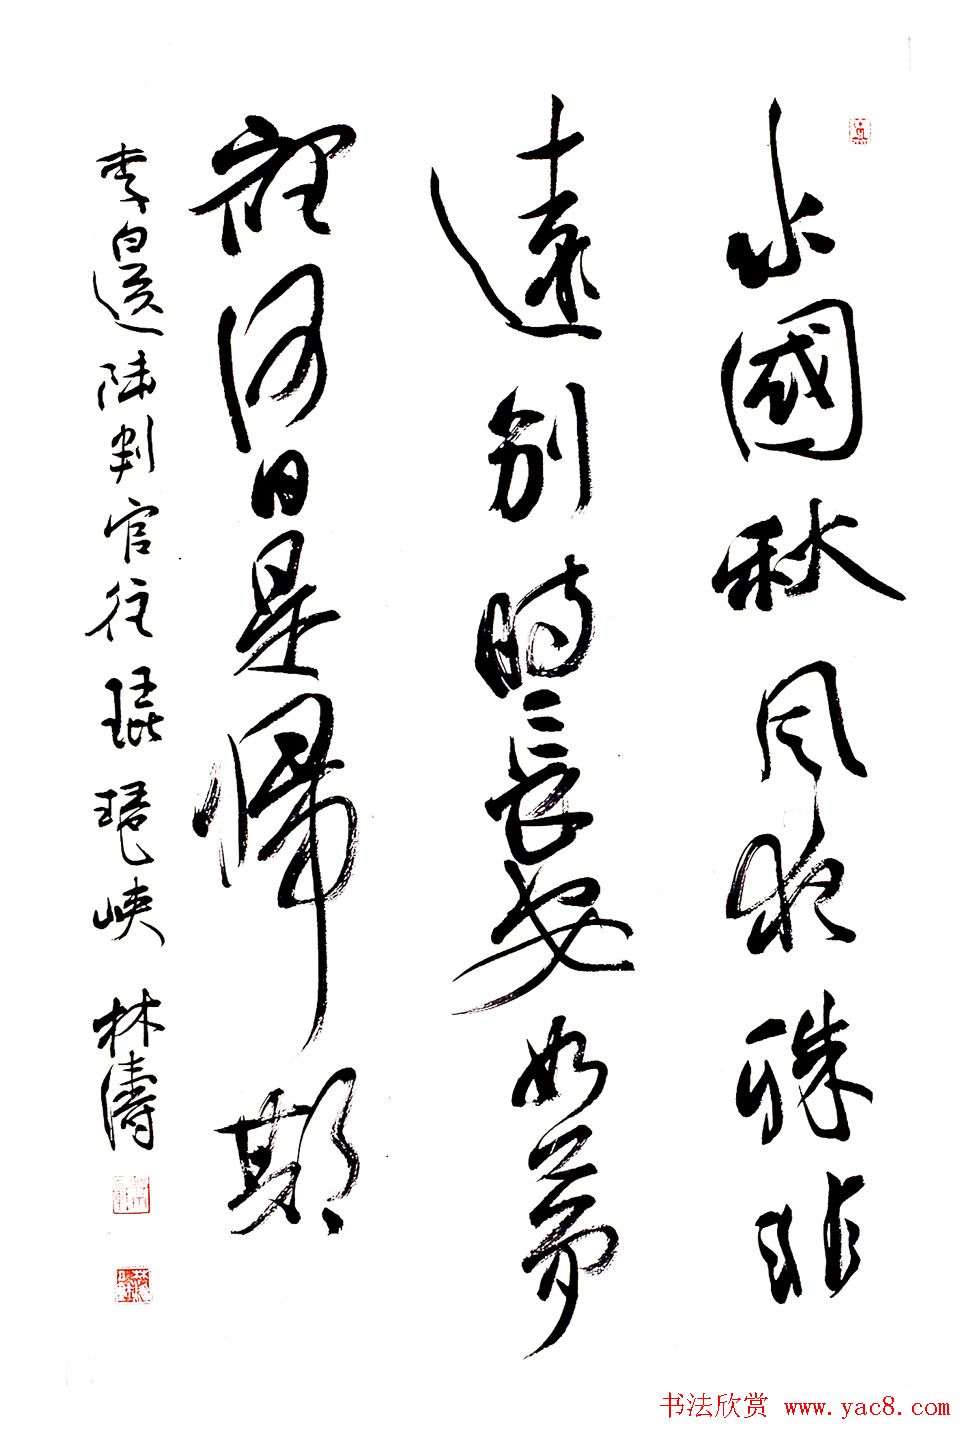 水國秋風夜殊非
遠別時長安如夢
裡何日是歸期
李白送陸判官往琵琶峽 林濤
书法欣赏 www.yac8.com